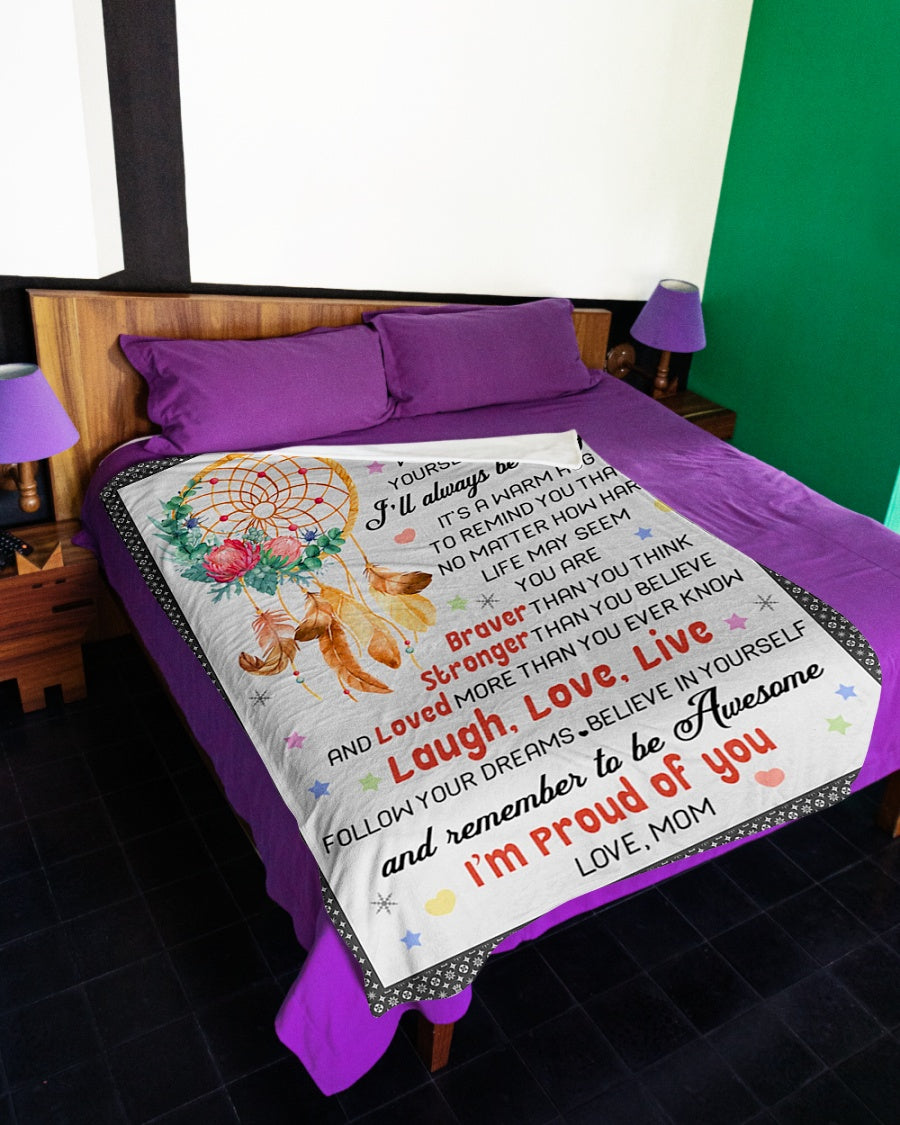 YOURSE
I'll always be
IT'S A WARM HUG
TO REMIND YOU THA
NO MATTER HOW HAR
LIFE MAY SEEM
YOU ARE
Braver THAN YOU THINK
Stronger THAN YOU BELIEVE
AND Loved MORE THAN YOU EVER KNOW
Laugh, Love, Live
FOLLOW YOUR DREAMS.BELIEVE IN YOURSELF
and remember to be Awesome
I'm Proud of you
LOVE, MOM